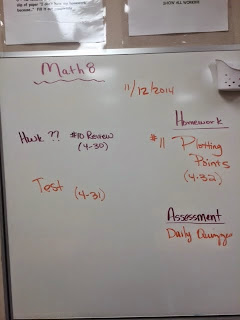 slip of paper "I don't have my homework
because." Fill it out
SHOW ALL WORK!!!
Math 8
11/12/2014
Hwk ?? #10 Review
(4-30)
Test (4-31)
Homework
#11 Plotting
Points
(4-32)
Assessment
Daily